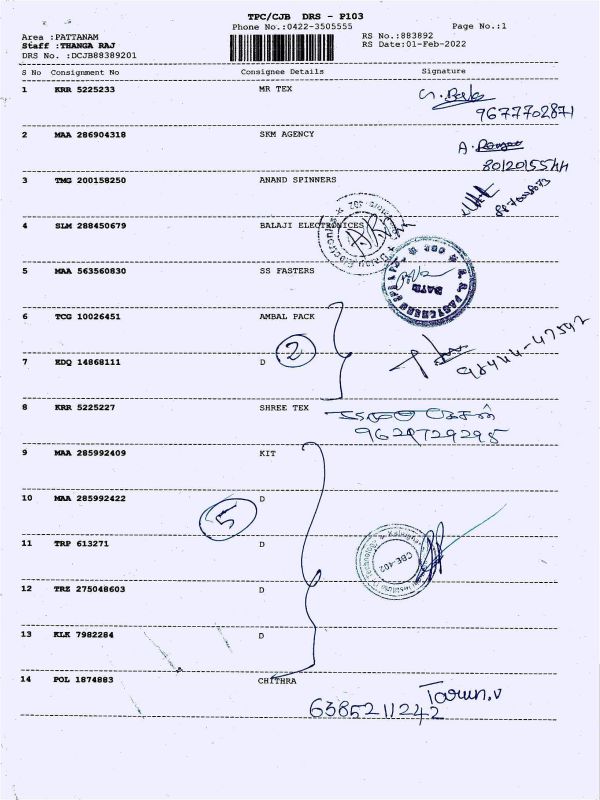 TPC/CJB DRS - P103
Phone No.:0422-3505555 Page No.:1
Area :PATTANAM RS No.:883892
Staff :THANGA RAJ RS Date:01-Feb-2022
DRS No. :DCJB88389201
S No Consignment No Consignee Details Signature
1 KRR 5225233 MR TEX
9677702871
2 MAA 286904318 SKM AGENCY
A.
8012015544
3 TMG 200158250 ANAND SPINNERS
4 SLM 288450679 BALAJI ELECTRONICES
5 MAA 563560830 SS FASTERS
6 TCG 10026451 AMBAL PACK
2
7 EDQ 14868111 D
98444-47592
8 KRR 5225227 SHREE TEX
9629729295
9 MAA 285992409 KIT
10 MAA 285992422 D
5
11 TRP 613271 D
CBE-402
12 TRZ 275048603 D
13 KLK 7982284 D
14 POL 1874883 CHITHRA
Tarun.V
6385211242